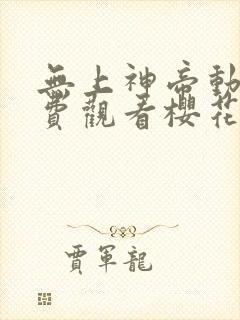 無上神帝動
費觀看櫻花
賈軍龍